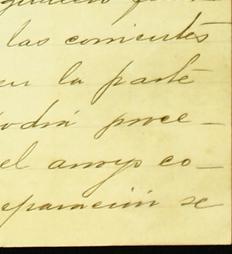 las corrientes
en la parte
podrá proce-
el arroyo co-
eparación se